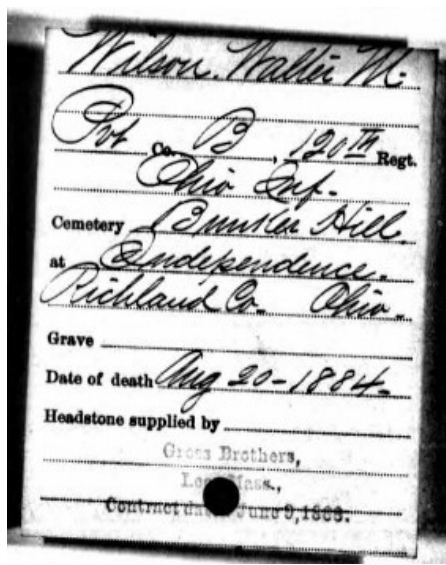 Wilson. Walter M.
Pvt Co. B, 120th Regt.
Ohio Inf.
Cemetery Bunker Hill
at Independence.
Richland Co. Ohio.
Grave
Date of death Aug 20-1884-
Headstone supplied by
Gross Brothers,
Mass.,
Contract June 9,